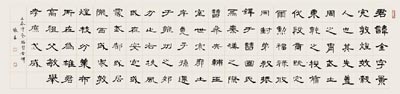 君諱全字景
完敦煌效穀
人也其先蓋
周之胄武王
秉乾之機翦
伐殷商既定
爾勳福祿攸
同封弟叔振
鐸于曹國因
氏焉秦漢之
際曹參夾輔
王室世宗廓
土斥竟子孫
遷于雍州之
郊分止右扶
風或在安定
或處武都或
居隴西或家
敦煌
枝分葉布
所在為雄君
高祖父敏舉
孝廉武威